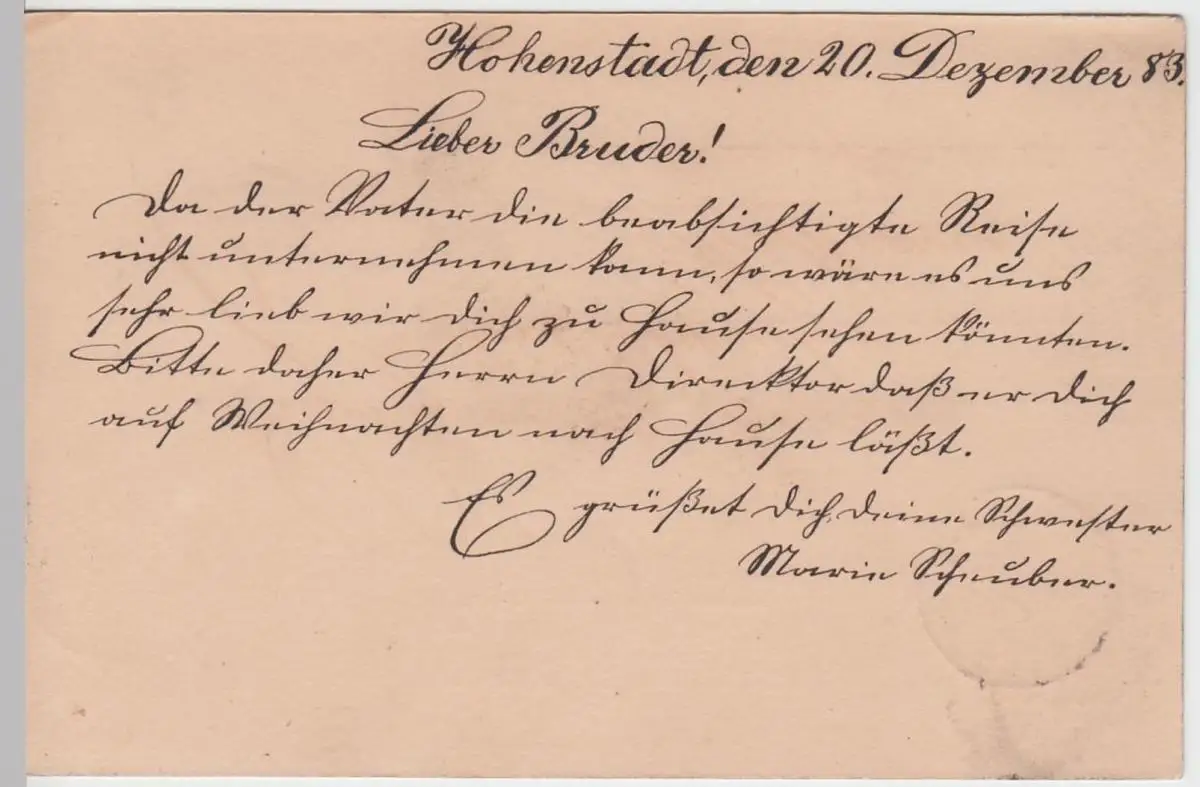 Hohenstadt, den 20. Dezember 83.
Lieber Bruder!
Da der Vater die beabsichtigte Reise
nicht unternehmen kann, so wäre es uns
sehr lieb wir dich zu Hause sehen könnten.
Bitte daher Herrn Direcktor daß er dich
auf Weihnachten nach Hause läßt.
Es grüßet dich, deine Schwester
Marie Scheuber.